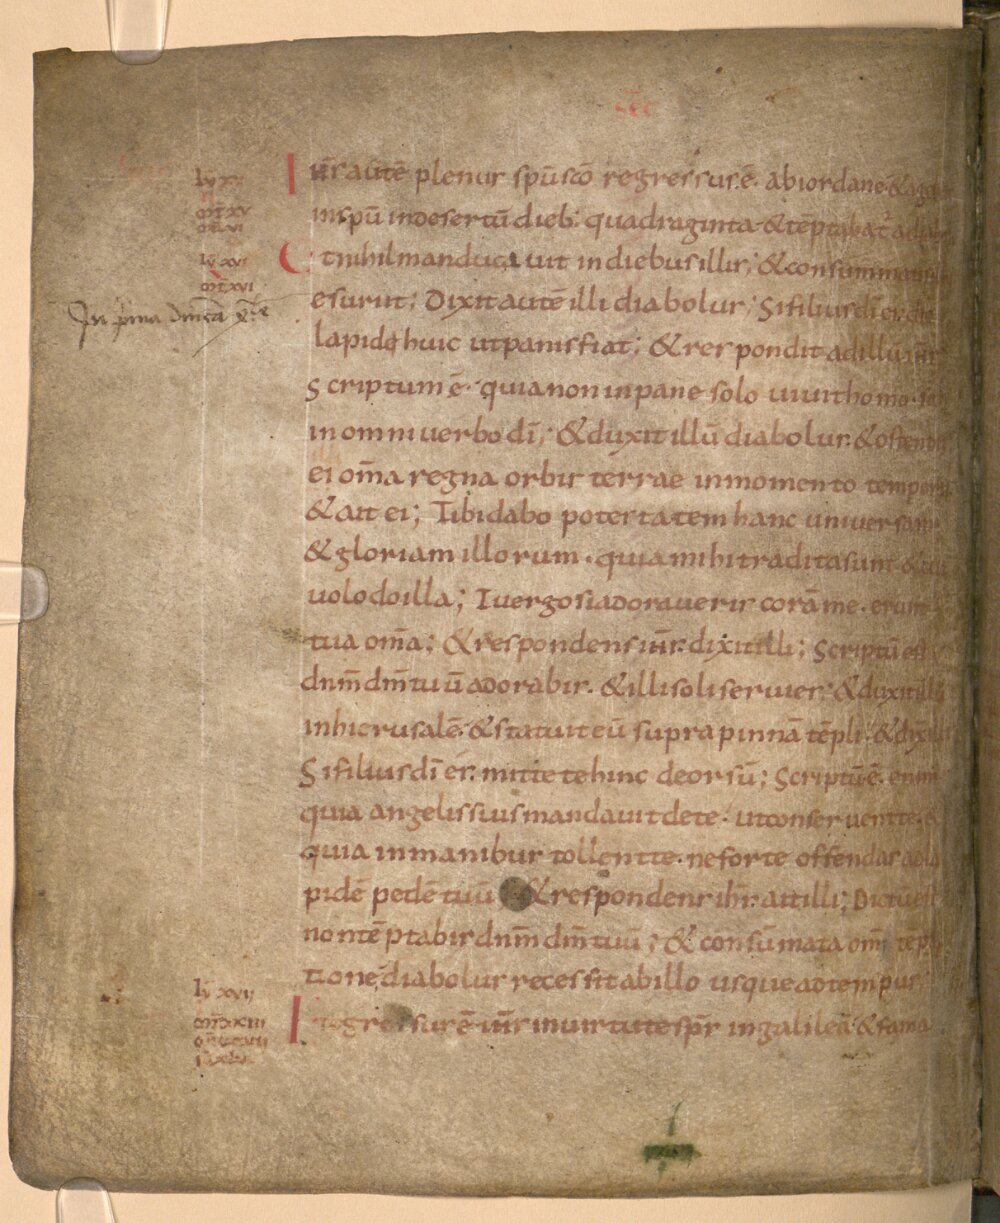 sēc
lū xv
mt̄ xv
mr̄ vi
Iħs autē plenus sp̄u scō regressus ē. ab iordane &
in sp̄u in desertū dieb; quadraginta & tēptabat᷑ a
lū xvi
mt̄ xvi
Et nihil manducavit in diebus illis; & consummatis
In p̄ma dn̄ica xl͞e
esuriit; Dixit autē illi diabolus; Si filius dī es. dic
lapidi huic ut panis fiat; & respondit ad illū iħs
Scriptum ē. quia non in pane solo vivit homo. sed
in omni verbo dī; & duxit illū diabolus. & ostendit
ei om̄a regna orbis terrae in momento temporis
& ait ei; Tibi dabo potestatem hanc universam
& gloriam illorum. quia mihi tradita sunt & cui
volo do illa; Tu ergo si adoraveris corā me. erunt
tua om̄a; & respondens iħs. dixit illi; Scriptū est
dn̄m dm̄ tuū adorabis. & illi soli servies; & duxit illū
in hierusalē. & statuit eū supra pinnā tēpli. & dixit
Si filius dī es. mitte te hinc deorsū; Scriptū ē. enim
quia angelis suis mandavit de te. ut conservent te. &
quia in manibus tollent te. ne forte offendas ad la
pidē pedē tuū & respondens iħs. ait illi; Dictū est
non tēptabis dn̄m dm̄ tuū; & consūmata om̄i tēp
tione, diabolus recessit ab illo usque ad tempus
lū xvii
Regressus ē iħs in virtute sp̄s in galileā & fama